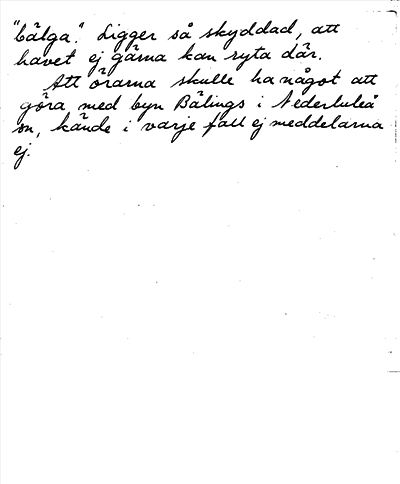 "bälga". Ligger så skyddad, att
havet ej gärna kan ryta där.
Att örarna skulle ha något att
göra med byn Bälings i Nederluleå
sn, kände i varje fall ej meddelarna
ej.